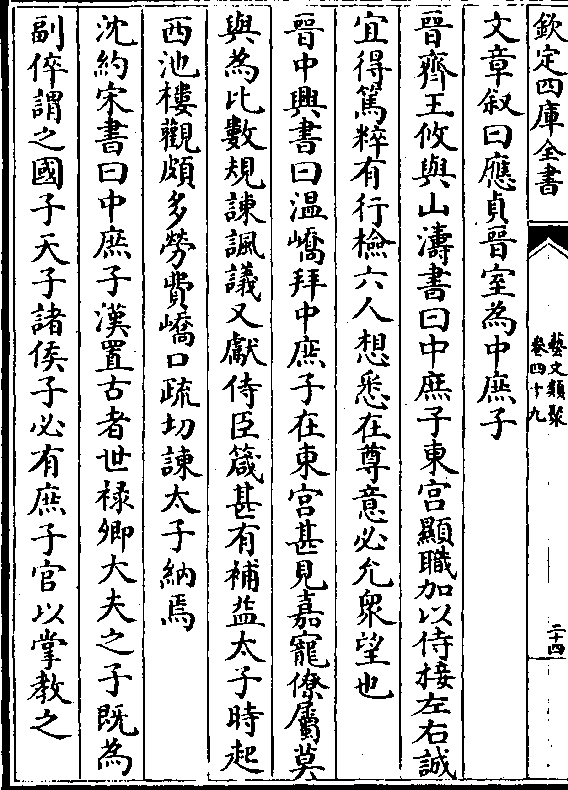 欽定四庫全書
藝文類聚
卷四十九
二十四
文章叙曰應貞晉室為中庶子
晉齊王攸與山濤書曰中庶子東宮顯職加以侍接左右誠
宜得篤粹有行檢六人想悉在尊意必允衆望也
晉中興書曰温嶠拜中庶子在東宮甚見嘉寵僚屬莫
與為比數規諫諷議又獻侍臣箴甚有補益太子時起
西池樓觀頗多勞費嶠口疏切諫太子納焉
沈約宋書曰中庶子漢置古者世禄卿大夫之子既為
副倅謂之國子天子諸侯子必有庶子官以掌教之